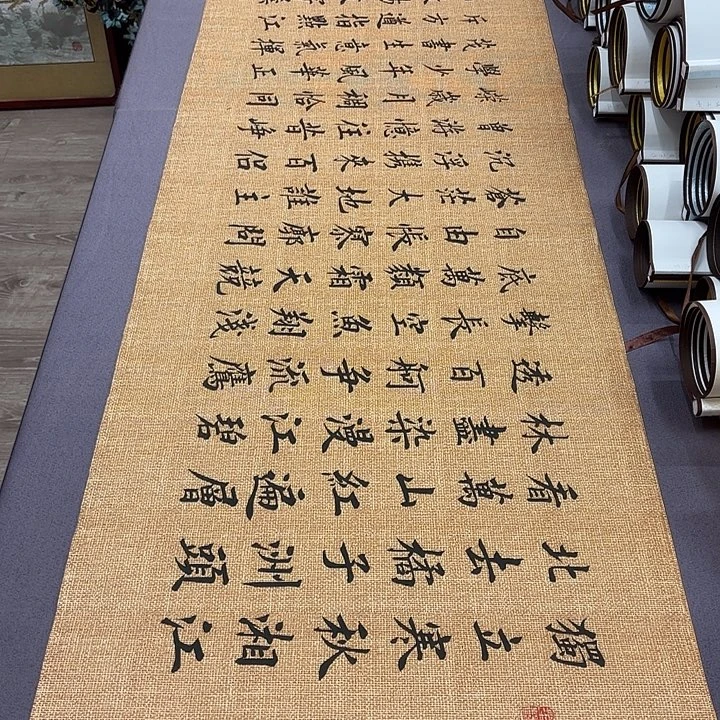 獨立寒秋湘江
北去橘子洲頭
看萬山紅遍層
林盡染漫江碧
透百舸争流鷹
擊長空魚翔淺
底萬類霜天競
自由悵寥廓問
蒼茫大地誰主
沉浮攜來百侶
曾游憶往昔峥
嶸歲月稠恰同
學少年風華正
茂書生意氣揮
斥方遒指點江